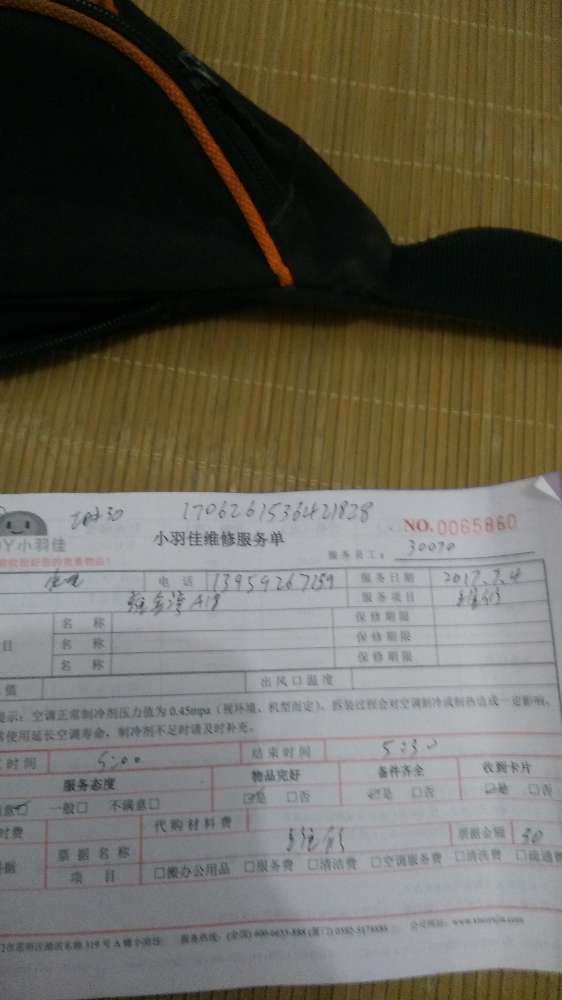 1706261536421828
NO.0065860
小羽佳
小羽佳维修服务单
服务员工: 30070
电话 13959267159 服务日期 2017.7.4
A18 服务项目
名称 保修期限
目 名称 保修期限
名称 保修期限
值 出风口温度
提示:空调正常制冷剂压力值为0.45mpa(视环境、机型而定),拆装过程会对空调制冷或制热造成一定影响,
使用延长空调寿命,制冷剂不足时请及时补充。
时间 5:00 结束时间 5:30
服务态度 物品完好 备件齐全 收到卡片
意☑ 一般□ 不满意□ ☑是 □否 ☑是 □否 ☑是 □否
时费 代购材料费
票据名称 票据金额 30
项目 □搬办公用品 □服务费 □清洁费 □空调服务费 □清洗费 □疏通费
319号A幢 服务热线:(全国)400-0633-888